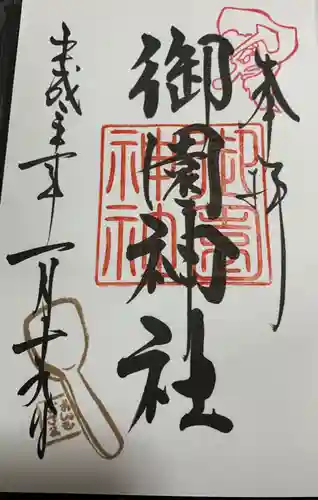 奉拝
御園神社
御園神社
平成三十一年一月十九日